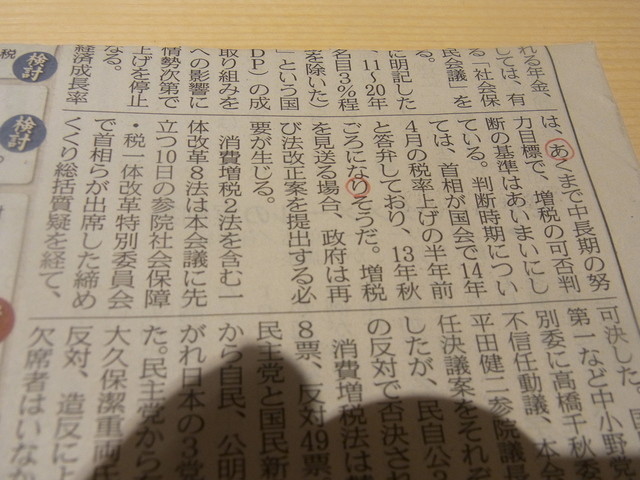 れる年金、
しては、有
る「社会保
民会議」を
る。
に明記した
、11~20年
名目3%程
を除いた)
」という国
DP)の成
取り組みを
への影響に
情勢次第で
上げを停止
なる。
経済成長率
検討
税
は、あくまで中長期の努
力目標で、増税の可否判
断の基準はあいまいにし
ている。判断時期につい
ては、首相が国会で14年
4月の税率上げの半年前
と答弁しており、13年秋
ごろになりそうだ。増税
を見送る場合、政府は再
び法改正案を提出する必
要が生じる。
消費増税2法を含む一
体改革8法は本会議に先
立つ10日の参院社会保障
・税一体改革特別委員会
で首相らが出席した締め
くくり総括質疑を経て、
検討
可決した
第一など中小野党
別委に高橋千秋委
不信任動議、本会
平田健二参院議長
任決議案をそれぞ
したが、民自公3
の反対で否決され
消費増税法は
8票、反対49票
民主党と国民新
から自民、公明
がれ日本の3党
た。民主党から
大久保潔重両氏
反対、造反によ
欠席者はいなか